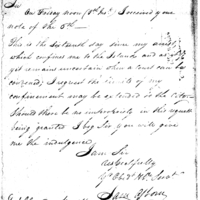 Sir
On Friday noon 8th I received your
note of the 6th —
This is the sixteenth day since my arrest
which confined me to the Island and as
yet remains uncertain when a trial can be
convened; I request the limits of my
confinement may be extended to the City.
Should there be no impropriety in this request
being granted I beg Sir you will give
me the indulgence,
I am Sir
respectfully
Yr Obdt Hble Servt